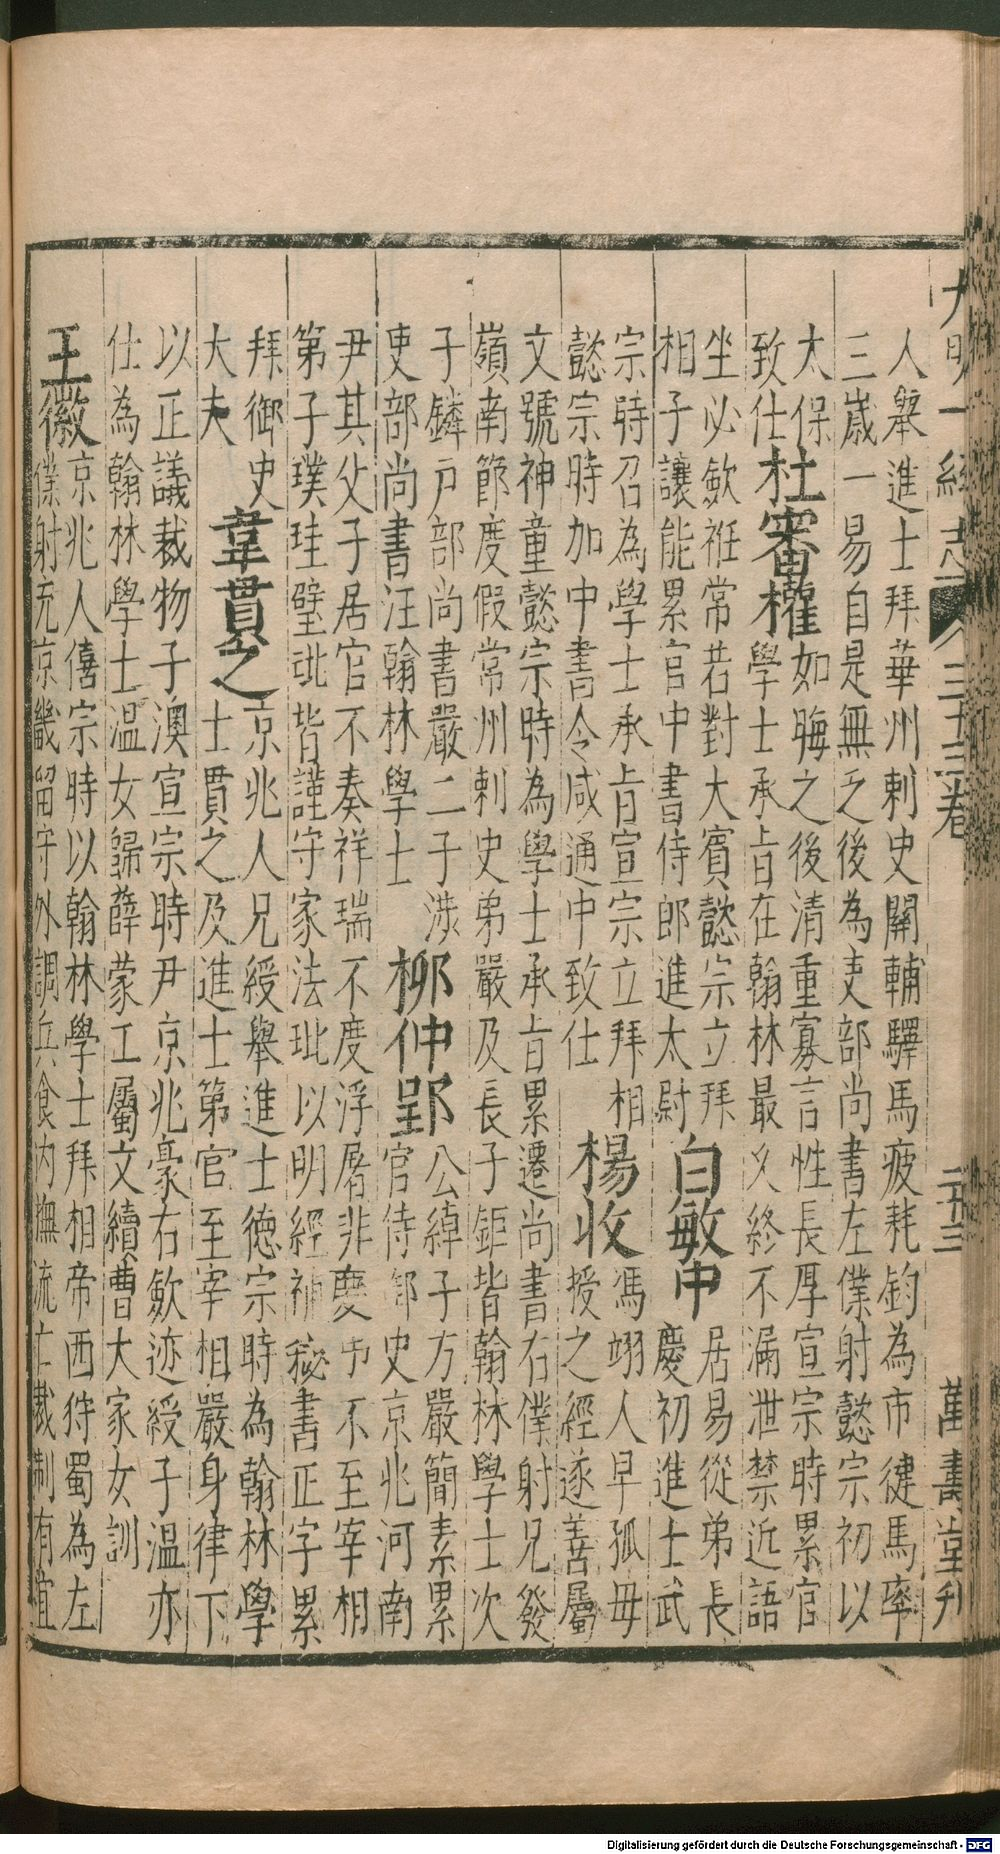 大明一統志 三十三卷 二十三 萬壽堂刊
人舉進士拜華州刺史關輔驛馬疲耗鈞為市健馬率
三歲一易自是無乏後為吏部尚書左僕射懿宗初以
太保
致仕
杜審權
如晦之後清重寡言性長厚宣宗時累官
學士承旨在翰林最久終不漏泄禁近語
坐必斂衽常若對大賓懿宗立拜
相子讓能累官中書侍郎進太尉
白敏中
居易從弟長
慶初進士武
宗時召為學士承旨宣宗立拜相
懿宗時加中書令咸通中致仕
楊收
馮翊人早孤母
授之經遂善屬
文號神童懿宗時為學士承旨累遷尚書右僕射兄發
嶺南節度假常州刺史弟嚴及長子鉅皆翰林學士次
子鏻戶部尚書嚴二子涉
吏部尚書注翰林學士
柳仲郢
公綽子方嚴簡素累
官侍郎史京兆河南
尹其父子居官不奏祥瑞不度浮屠非慶弔不至宰相
第子璞珪璧玭皆謹守家法玭以明經補秘書正字累
拜御史
大夫
韋貫之
京兆人兄綬舉進士德宗時為翰林學
士貫之及進士第官至宰相嚴身律下
以正議裁物子澳宣宗時尹京兆豪右斂迹綬子溫亦
仕為翰林學士溫女歸薛蒙工屬文續曹大家女訓
王徽
京兆人僖宗時以翰林學士拜相帝西狩蜀為左
僕射充京畿留守外調兵食內撫流亡裁制有宜
Digitalisierung gefördert durch die Deutsche Forschungsgemeinschaft - DFG